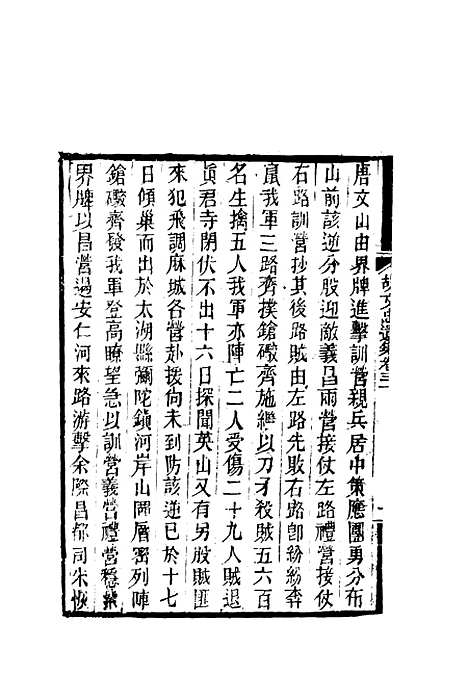 唐文山由界牌進擊訓營親兵居中策應團勇分布
山前該逆分股迎敵義昌兩營接仗左路禮營接仗
右路訓營抄其後路賊由左路先敗右路卽紛紛奔
竄我軍三路齊撲鎗礮齊施繼以刀矛殺賊五六百
名生擒五人我軍亦陣亡二人受傷二十九人賊退
眞君寺閉伏不出十六日探聞英山又有另股賊匪
來犯飛調麻城各營赴援尚未到防該逆已於十七
日傾巢而出於太湖縣彌陀鎮河岸山岡層密列陣
鎗礮齊發我軍登高瞭望急以訓營義營禮營穩紮
界牌以昌營過安仁河來路游擊余際昌都司朱恢
胡文忠遺集卷三